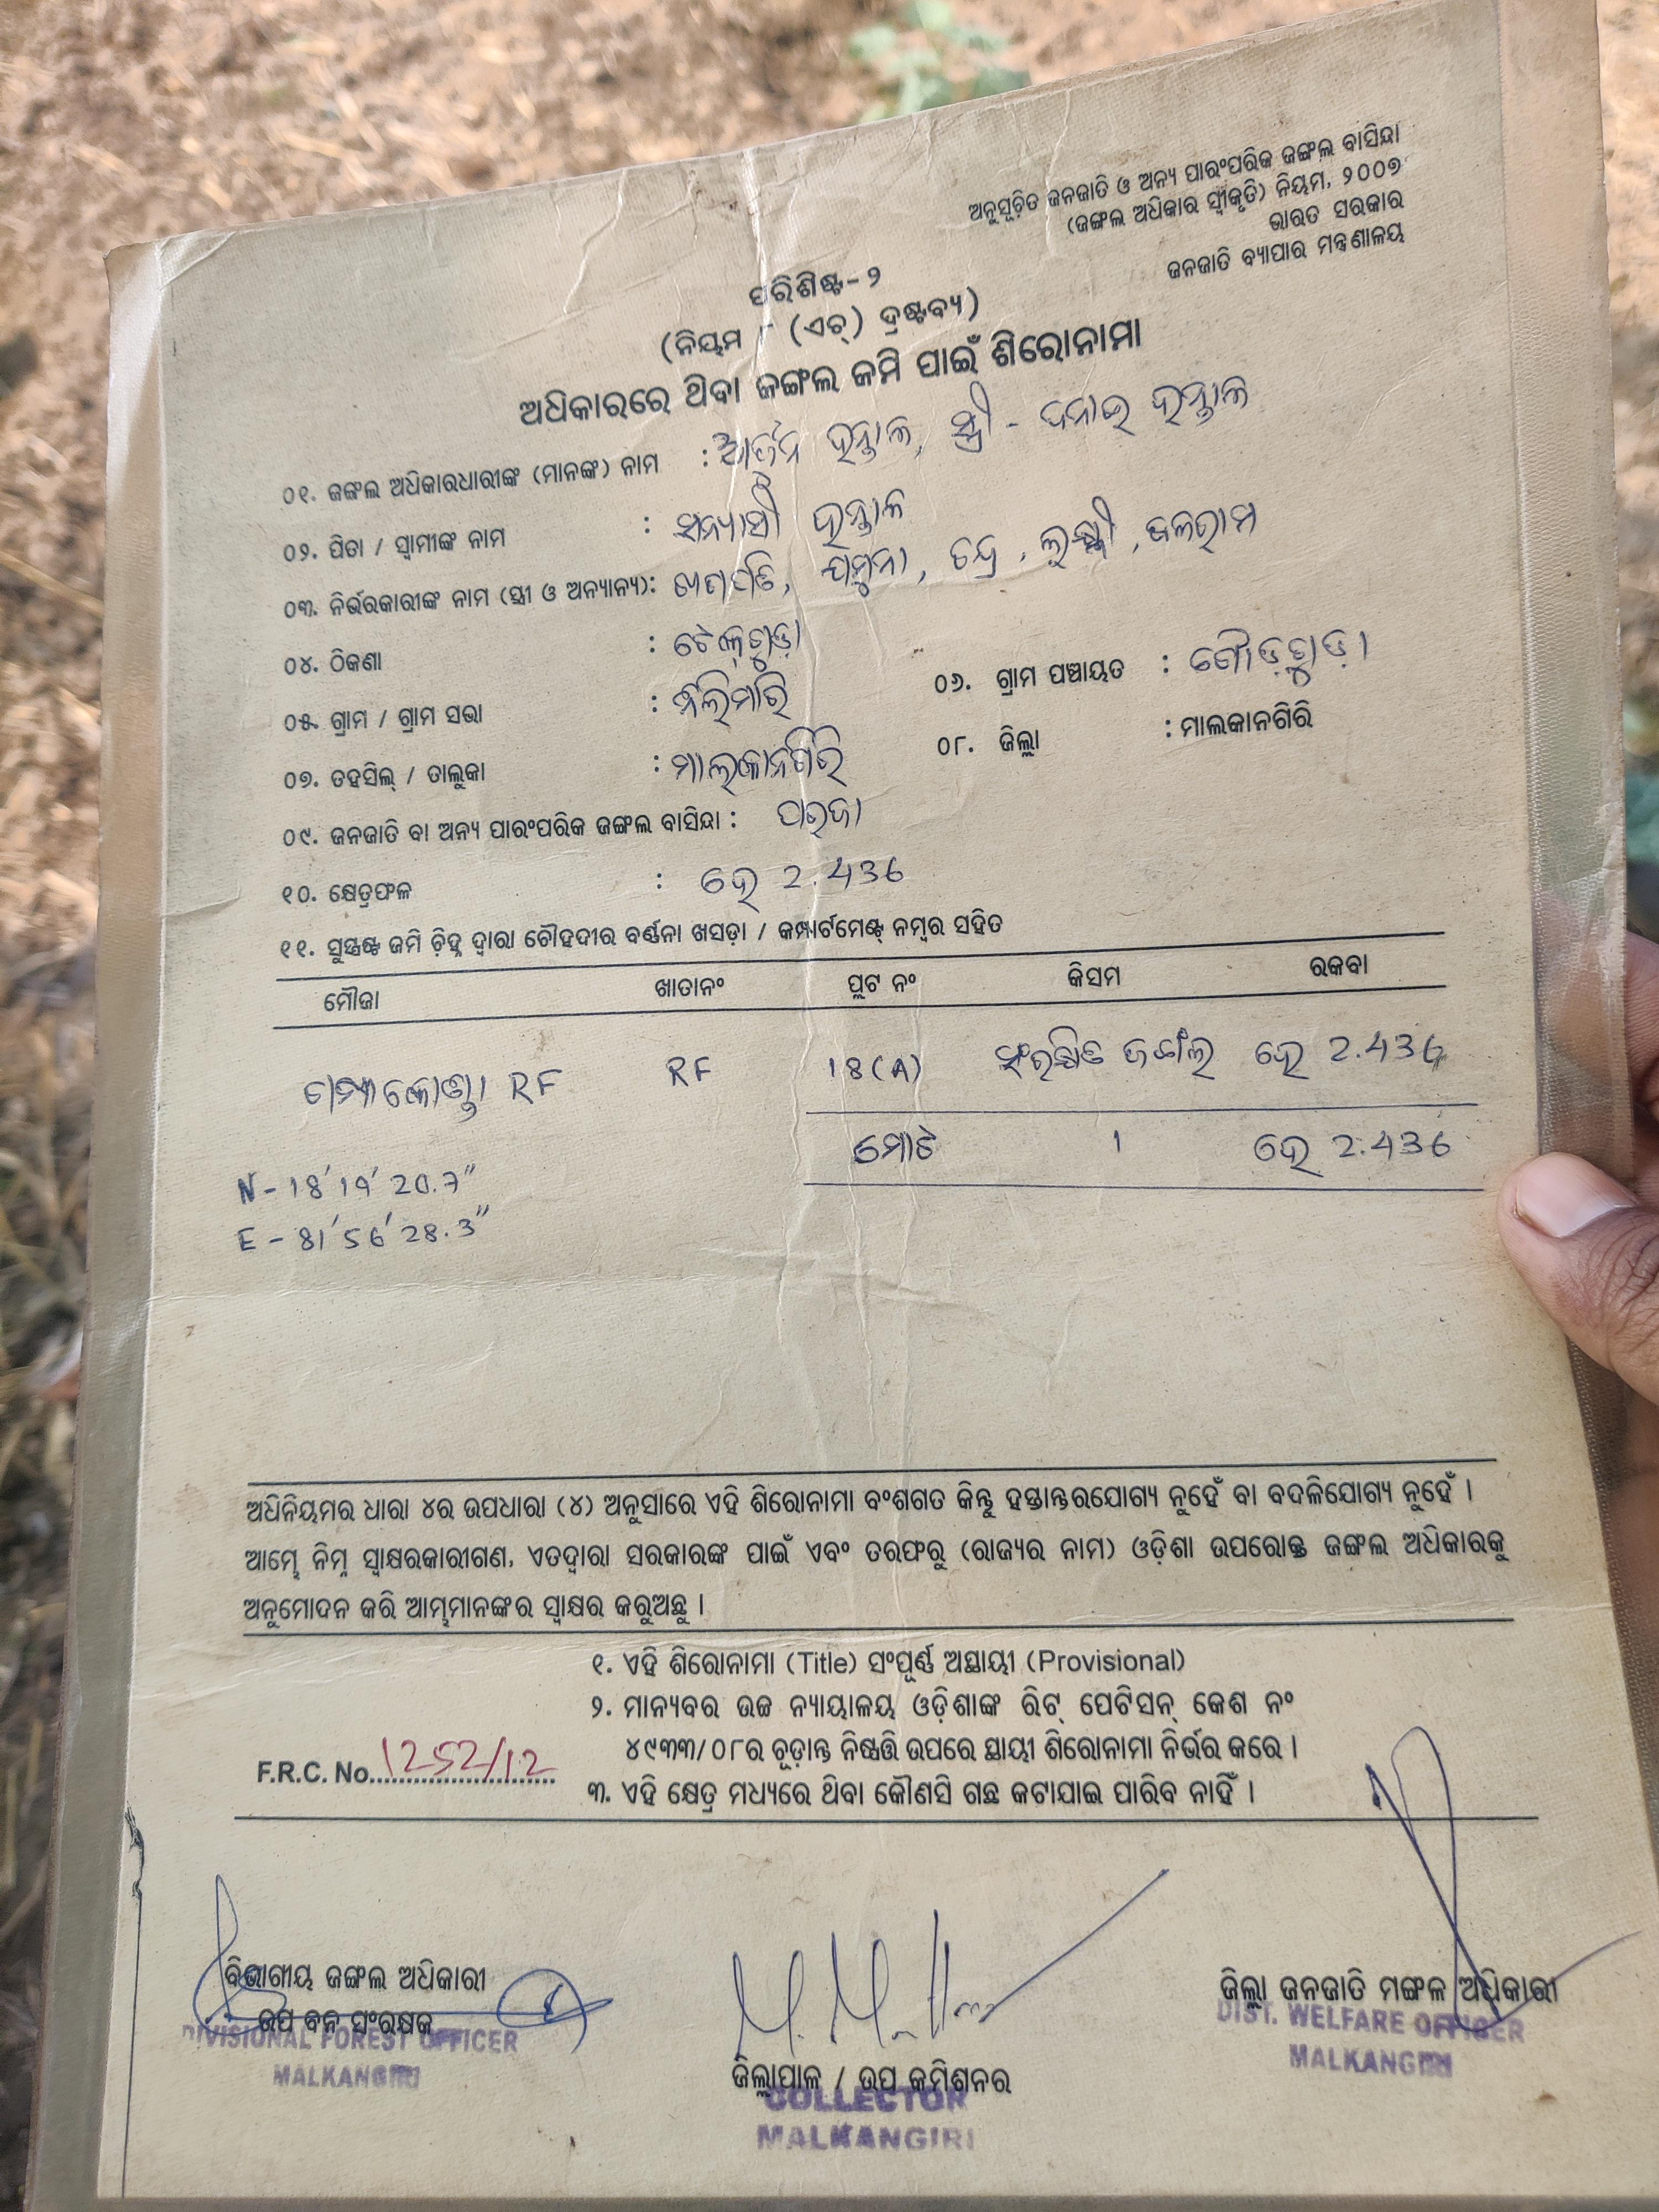 ଅନୁସୂଚିତ ଜନଜାତି ଓ ଅନ୍ୟ ପାରଂପରିକ ଜଙ୍ଗଲ ବାସିନ୍ଦା
(ଜଙ୍ଗଲ ଅଧିକାର ସ୍ୱୀକୃତି) ନିୟମ, ୨୦୦୭
ଭାରତ ସରକାର
ଜନଜାତି ବ୍ୟାପାର ମନ୍ତ୍ରଣାଳୟ
ପରିଶିଷ୍ଟ-୨
(ନିୟମ (ଏଚ୍) ଦ୍ରଷ୍ଟବ୍ୟ)
ଅଧିକାରରେ ଥିବା ଜଙ୍ଗଲ ଜମି ପାଇଁ ଶିରୋନାମା
୦୧. ଜଙ୍ଗଲ ଅଧିକାରଧାରୀଙ୍କ (ମାନଙ୍କ) ନାମ : ହନ୍ତାଳ, ସ୍ତ୍ରୀ - ହନ୍ତାଳ
୦୨. ପିତା / ସ୍ୱାମୀଙ୍କ ନାମ : ସନ୍ୟାସୀ ହନ୍ତାଳ
୦୩. ନିର୍ଭରକାରୀଙ୍କ ନାମ (ସ୍ତ୍ରୀ ଓ ଅନ୍ୟାନ୍ୟ): ଯମୁନା, ଚନ୍ଦ୍ର, ବଳରାମ
୦୪. ଠିକଣା : ଟେକ୍‌ଗୁଡ଼ା
୦୫. ଗ୍ରାମ / ଗ୍ରାମ ସଭା :
୦୬. ଗ୍ରାମ ପଞ୍ଚାୟତ : ଗୌଡ଼ଗୁଡ଼ା
୦୭. ତହସିଲ୍ / ତାଲୁକା : ମାଲକାନଗିରି
୦୮. ଜିଲ୍ଲା : ମାଲକାନଗିରି
୦୯. ଜନଜାତି ବା ଅନ୍ୟ ପାରଂପରିକ ଜଙ୍ଗଲ ବାସିନ୍ଦା : ପରଜା
୧୦. କ୍ଷେତ୍ରଫଳ : ହେ 2.436
୧୧. ସୁସ୍ପଷ୍ଟ ଜମି ଚିହ୍ନ ଦ୍ୱାରା ଚୌହଦୀର ବର୍ଣ୍ଣନା ଖସଡ଼ା / କମ୍ପାର୍ଟମେଣ୍ଟ୍ ନମ୍ବର ସହିତ
ମୌଜା ଖାତାନଂ ପ୍ଲଟ ନଂ କିସମ ରକବା
RF RF 18(A) ସଂରକ୍ଷିତ ଜଙ୍ଗଲ ହେ 2.436
ମୋଟ 1 ହେ 2.436
N - 18' 19' 20.7"
E - 81' 56' 28.3"
ଅଧିନିୟମର ଧାରା ୪ର ଉପଧାରା (୪) ଅନୁସାରେ ଏହି ଶିରୋନାମା ବଂଶଗତ କିନ୍ତୁ ହସ୍ତାନ୍ତରଯୋଗ୍ୟ ନୁହେଁ ବା ବଦଳିଯୋଗ୍ୟ ନୁହେଁ ।
ଆମ୍ଭେ ନିମ୍ନ ସ୍ୱାକ୍ଷରକାରୀଗଣ, ଏତଦ୍ୱାରା ସରକାରଙ୍କ ପାଇଁ ଏବଂ ତରଫରୁ (ରାଜ୍ୟର ନାମ) ଓଡ଼ିଶା ଉପରୋକ୍ତ ଜଙ୍ଗଲ ଅଧିକାରକୁ
ଅନୁମୋଦନ କରି ଆମ୍ଭମାନଙ୍କର ସ୍ୱାକ୍ଷର କରୁଅଛୁ ।
୧. ଏହି ଶିରୋନାମା (Title) ସଂପୂର୍ଣ୍ଣ ଅସ୍ଥାୟୀ (Provisional)
୨. ମାନ୍ୟବର ଉଚ୍ଚ ନ୍ୟାୟାଳୟ ଓଡ଼ିଶାଙ୍କ ରିଟ୍ ପେଟିସନ୍ କେଶ ନଂ
୪୯୩୩/୦୮ର ଚୂଡ଼ାନ୍ତ ନିଷ୍ପତ୍ତି ଉପରେ ସ୍ଥାୟୀ ଶିରୋନାମା ନିର୍ଭର କରେ ।
F.R.C. No. 1252/12
୩. ଏହି କ୍ଷେତ୍ର ମଧ୍ୟରେ ଥିବା କୌଣସି ଗଛ କଟାଯାଇ ପାରିବ ନାହିଁ ।
ବିଭାଗୀୟ ଜଙ୍ଗଲ ଅଧିକାରୀ
ଉପ ବନ ସଂରକ୍ଷକ
DIVISIONAL FOREST OFFICER
MALKANGIRI
ଜିଲ୍ଲାପାଳ / ଉପ କମିଶନର
COLLECTOR
MALKANGIRI
ଜିଲ୍ଲା ଜନଜାତି ମଙ୍ଗଳ ଅଧିକାରୀ
DIST. WELFARE OFFICER
MALKANGIRI